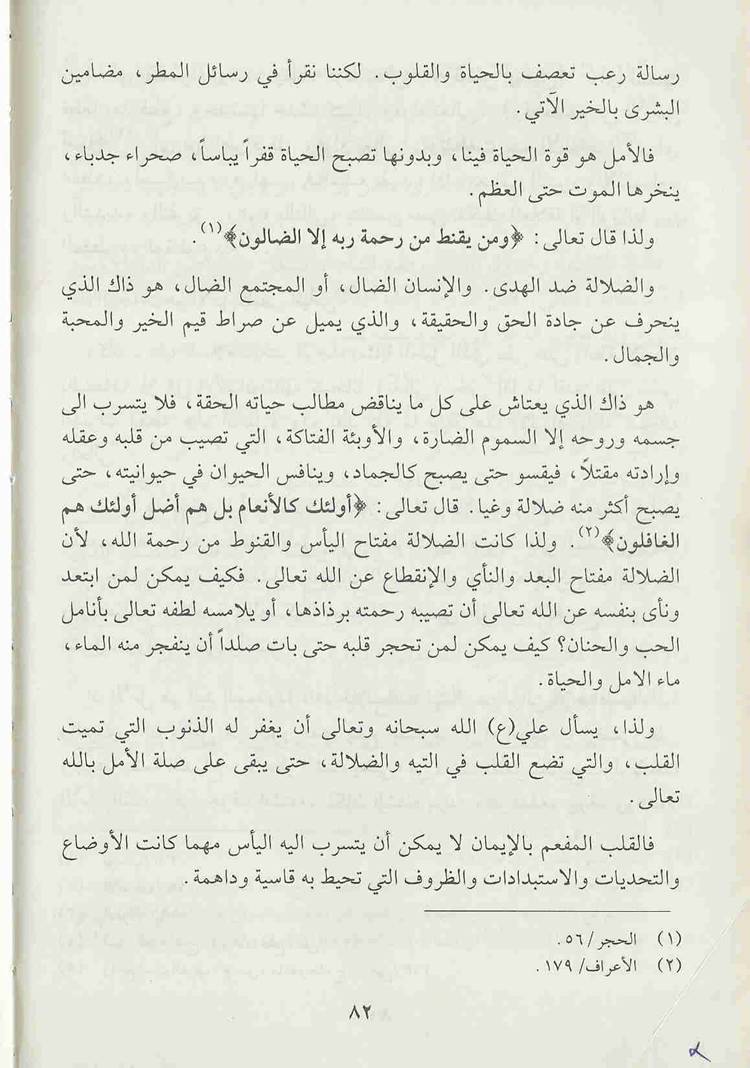 رسالة رعب تعصف بالحياة والقلوب. لكننا نقرأ في رسائل المطر، مضامين
البشرى بالخير الآتي.
فالأمل هو قوة الحياة فينا، وبدونها تصبح الحياة قفراً يباساً، صحراء جدباء،
ينخرها الموت حتى العظم.
ولذا قال تعالى: ﴿ومن يقنط من رحمة ربه إلا الضالون﴾(١).
والضلالة ضد الهدى. والإنسان الضال، أو المجتمع الضال، هو ذاك الذي
ينحرف عن جادة الحق والحقيقة، والذي يميل عن صراط قيم الخير والمحبة
والجمال.
هو ذاك الذي يعتاش على كل ما يناقض مطالب حياته الحقة، فلا يتسرب الى
جسمه وروحه إلا السموم الضارة، والأوبئة الفتاكة، التي تصيب من قلبه وعقله
وإرادته مقتلاً، فيقسو حتى يصبح كالجماد، وينافس الحيوان في حيوانيته، حتى
يصبح أكثر منه ضلالة وغيا. قال تعالى: ﴿أولئك كالأنعام بل هم أضل أولئك هم
الغافلون﴾(٢). ولذا كانت الضلالة مفتاح اليأس والقنوط من رحمة الله، لأن
الضلالة مفتاح البعد والنأي والإنقطاع عن الله تعالى. فكيف يمكن لمن ابتعد
ونأى بنفسه عن الله تعالى أن تصيبه رحمته برذاذها، أو يلامسه لطفه تعالى بأنامل
الحب والحنان؟ كيف يمكن لمن تحجر قلبه حتى بات صلداً أن ينفجر منه الماء،
ماء الامل والحياة.
ولذا، يسأل علي(ع) الله سبحانه وتعالى أن يغفر له الذنوب التي تميت
القلب، والتي تضع القلب في التيه والضلالة، حتى يبقى على صلة الأمل بالله
تعالى.
فالقلب المفعم بالإيمان لا يمكن أن يتسرب اليه اليأس مهما كانت الأوضاع
والتحديات والاستبدادات والظروف التي تحيط به قاسية وداهمة.
(١) الحجر/٥٦.
(٢) الأعراف/١٧٩.
٨٢